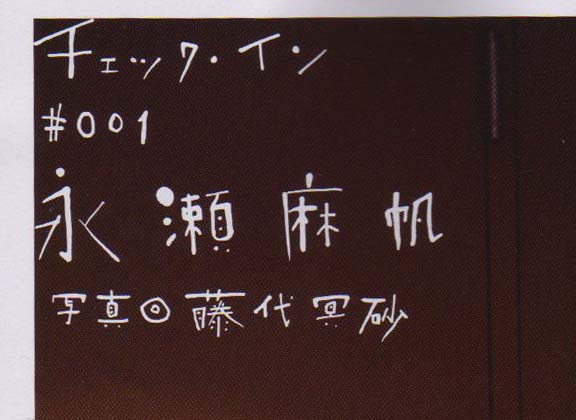 チェック・イン
#001
永瀬麻帆
写真◎藤代冥砂